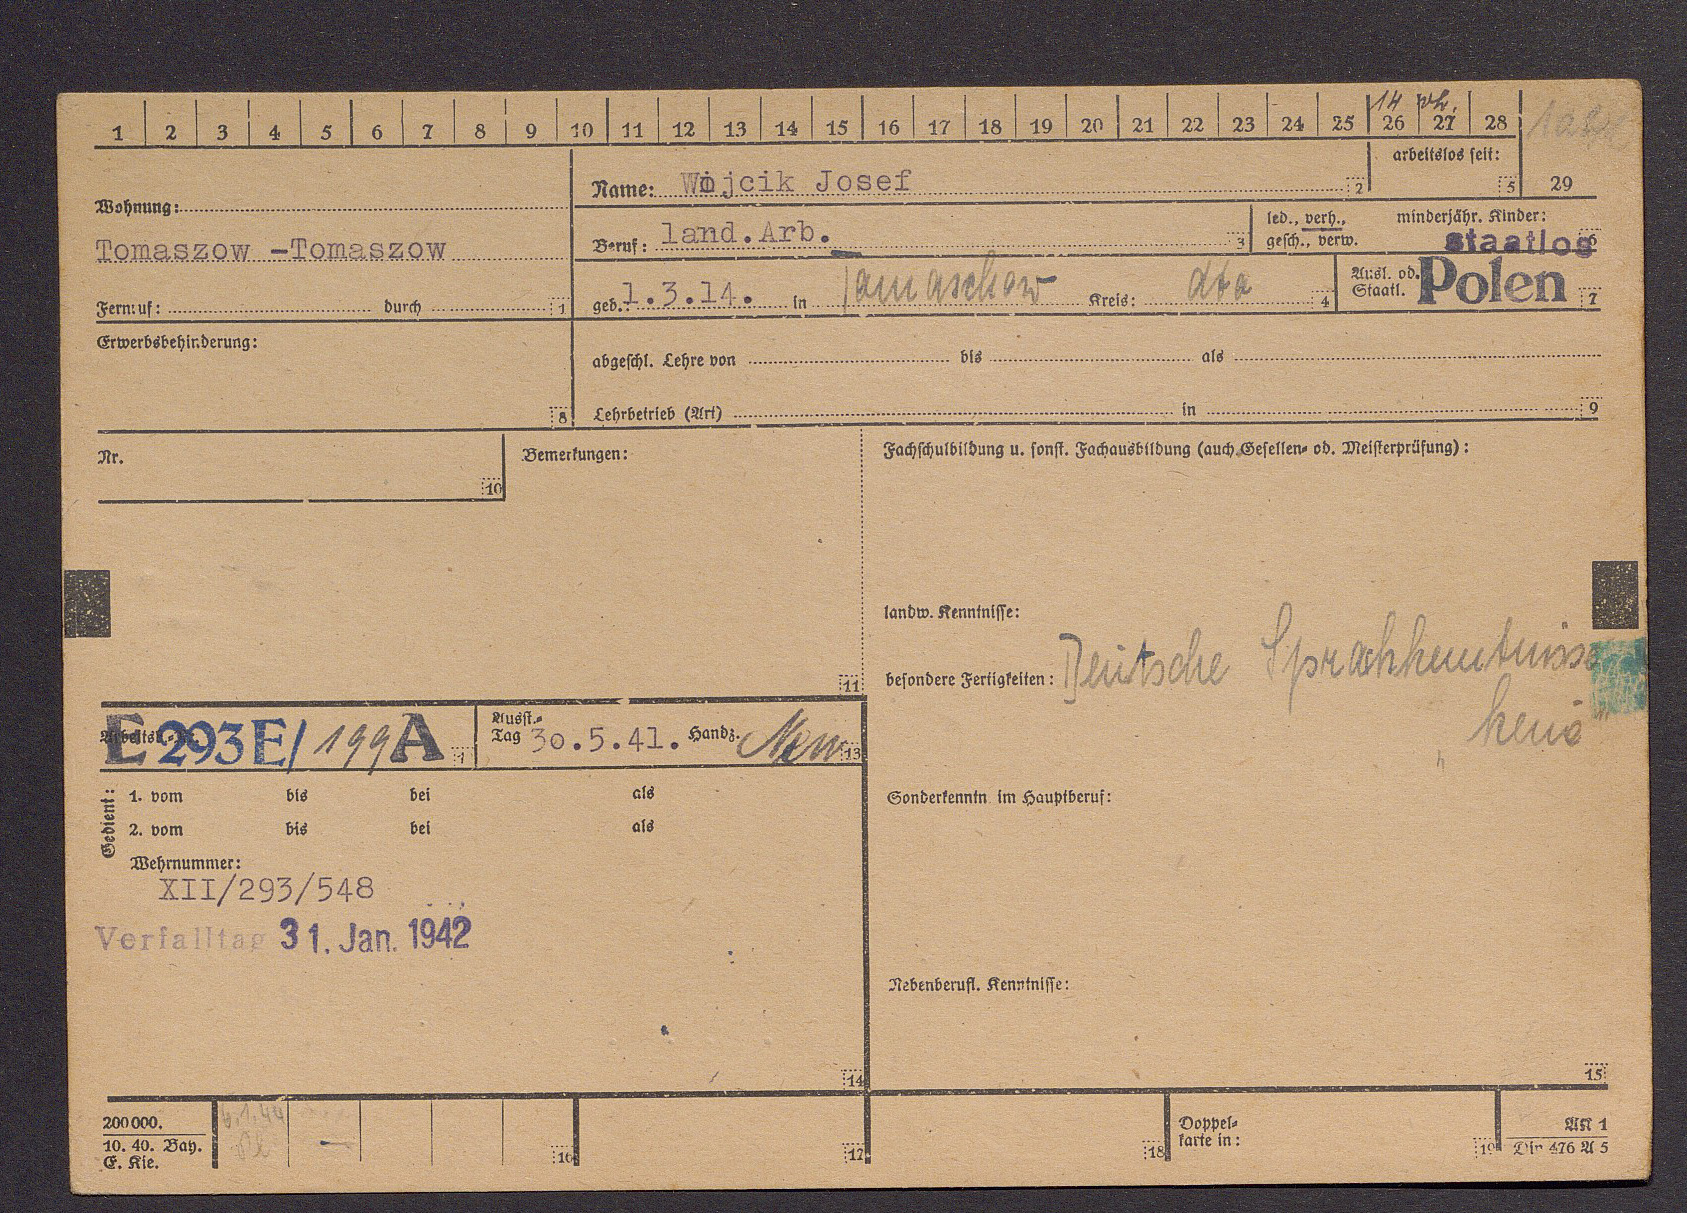 14 vh.
1 2 3 4 5 6 7 8 9 10 11 12 13 14 15 16 17 18 19 20 21 22 23 24 25 26 27 28
arbeitslos seit:
5 29
Wohnung:
Tomaszow -Tomaszow
Fernruf: durch 1
Name: Wojcik Josef 2
Beruf: land.Arb. 3
led., verh., gesch., verw.
minderjähr. Kinder:
staatlos 6
geb.: 1.3.14. in Tomaschow Kreis: dto 4
Ausl. od. Staatl. Polen 7
Erwerbsbehinderung:
8
abgeschl. Lehre von bis als
Lehrbetrieb (Art) in 9
Nr.
10
Bemerkungen:
11
Fachschulbildung u. sonst. Fachausbildung (auch Gesellen- od. Meisterprüfung):
landw. Kenntnisse:
besondere Fertigkeiten: Deutsche Sprachkenntnisse
keine
Arbeitsb.-Nr.
E 293 E/ 199 A
Ausst.-Tag 30.5.41. Handz. 13
Gedient:
1. vom bis bei als
2. vom bis bei als
Wehrnummer:
XII/293/548
Verfalltag 31. Jan. 1942
14
Sonderkenntn. im Hauptberuf:
Nebenberufl. Kenntnisse:
15
200000.
10. 40. Bay.
E. Kie.
6.1.44
16
17
18
Doppel-
karte in:
19
AK 1
Din 476 A 5